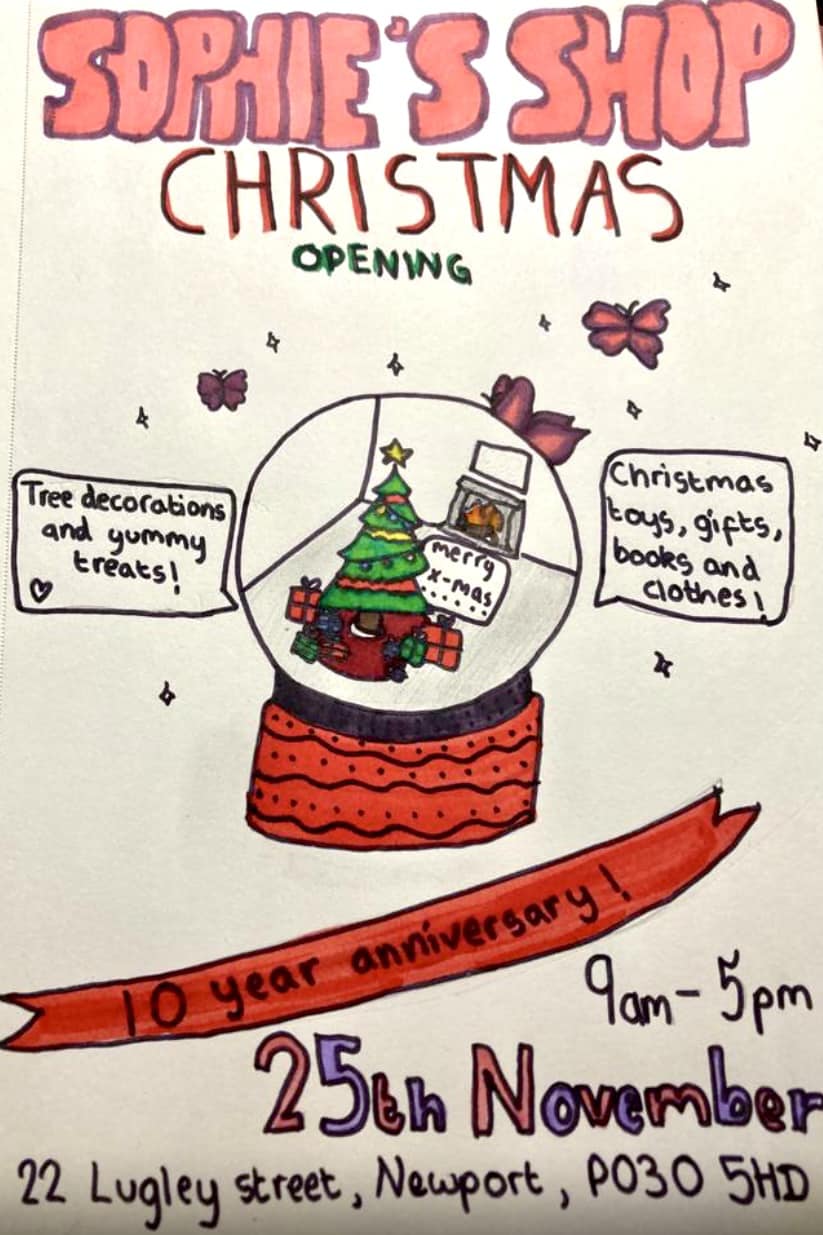 SOPHIE'S SHOP
CHRISTMAS
OPENING
Tree decorations
and yummy
treats!
Christmas
toys, gifts,
books and
clothes!
merry
x-mas
......
10 year anniversary!
9am - 5pm
25th November
22 Lugley street, Newport, PO30 5HD